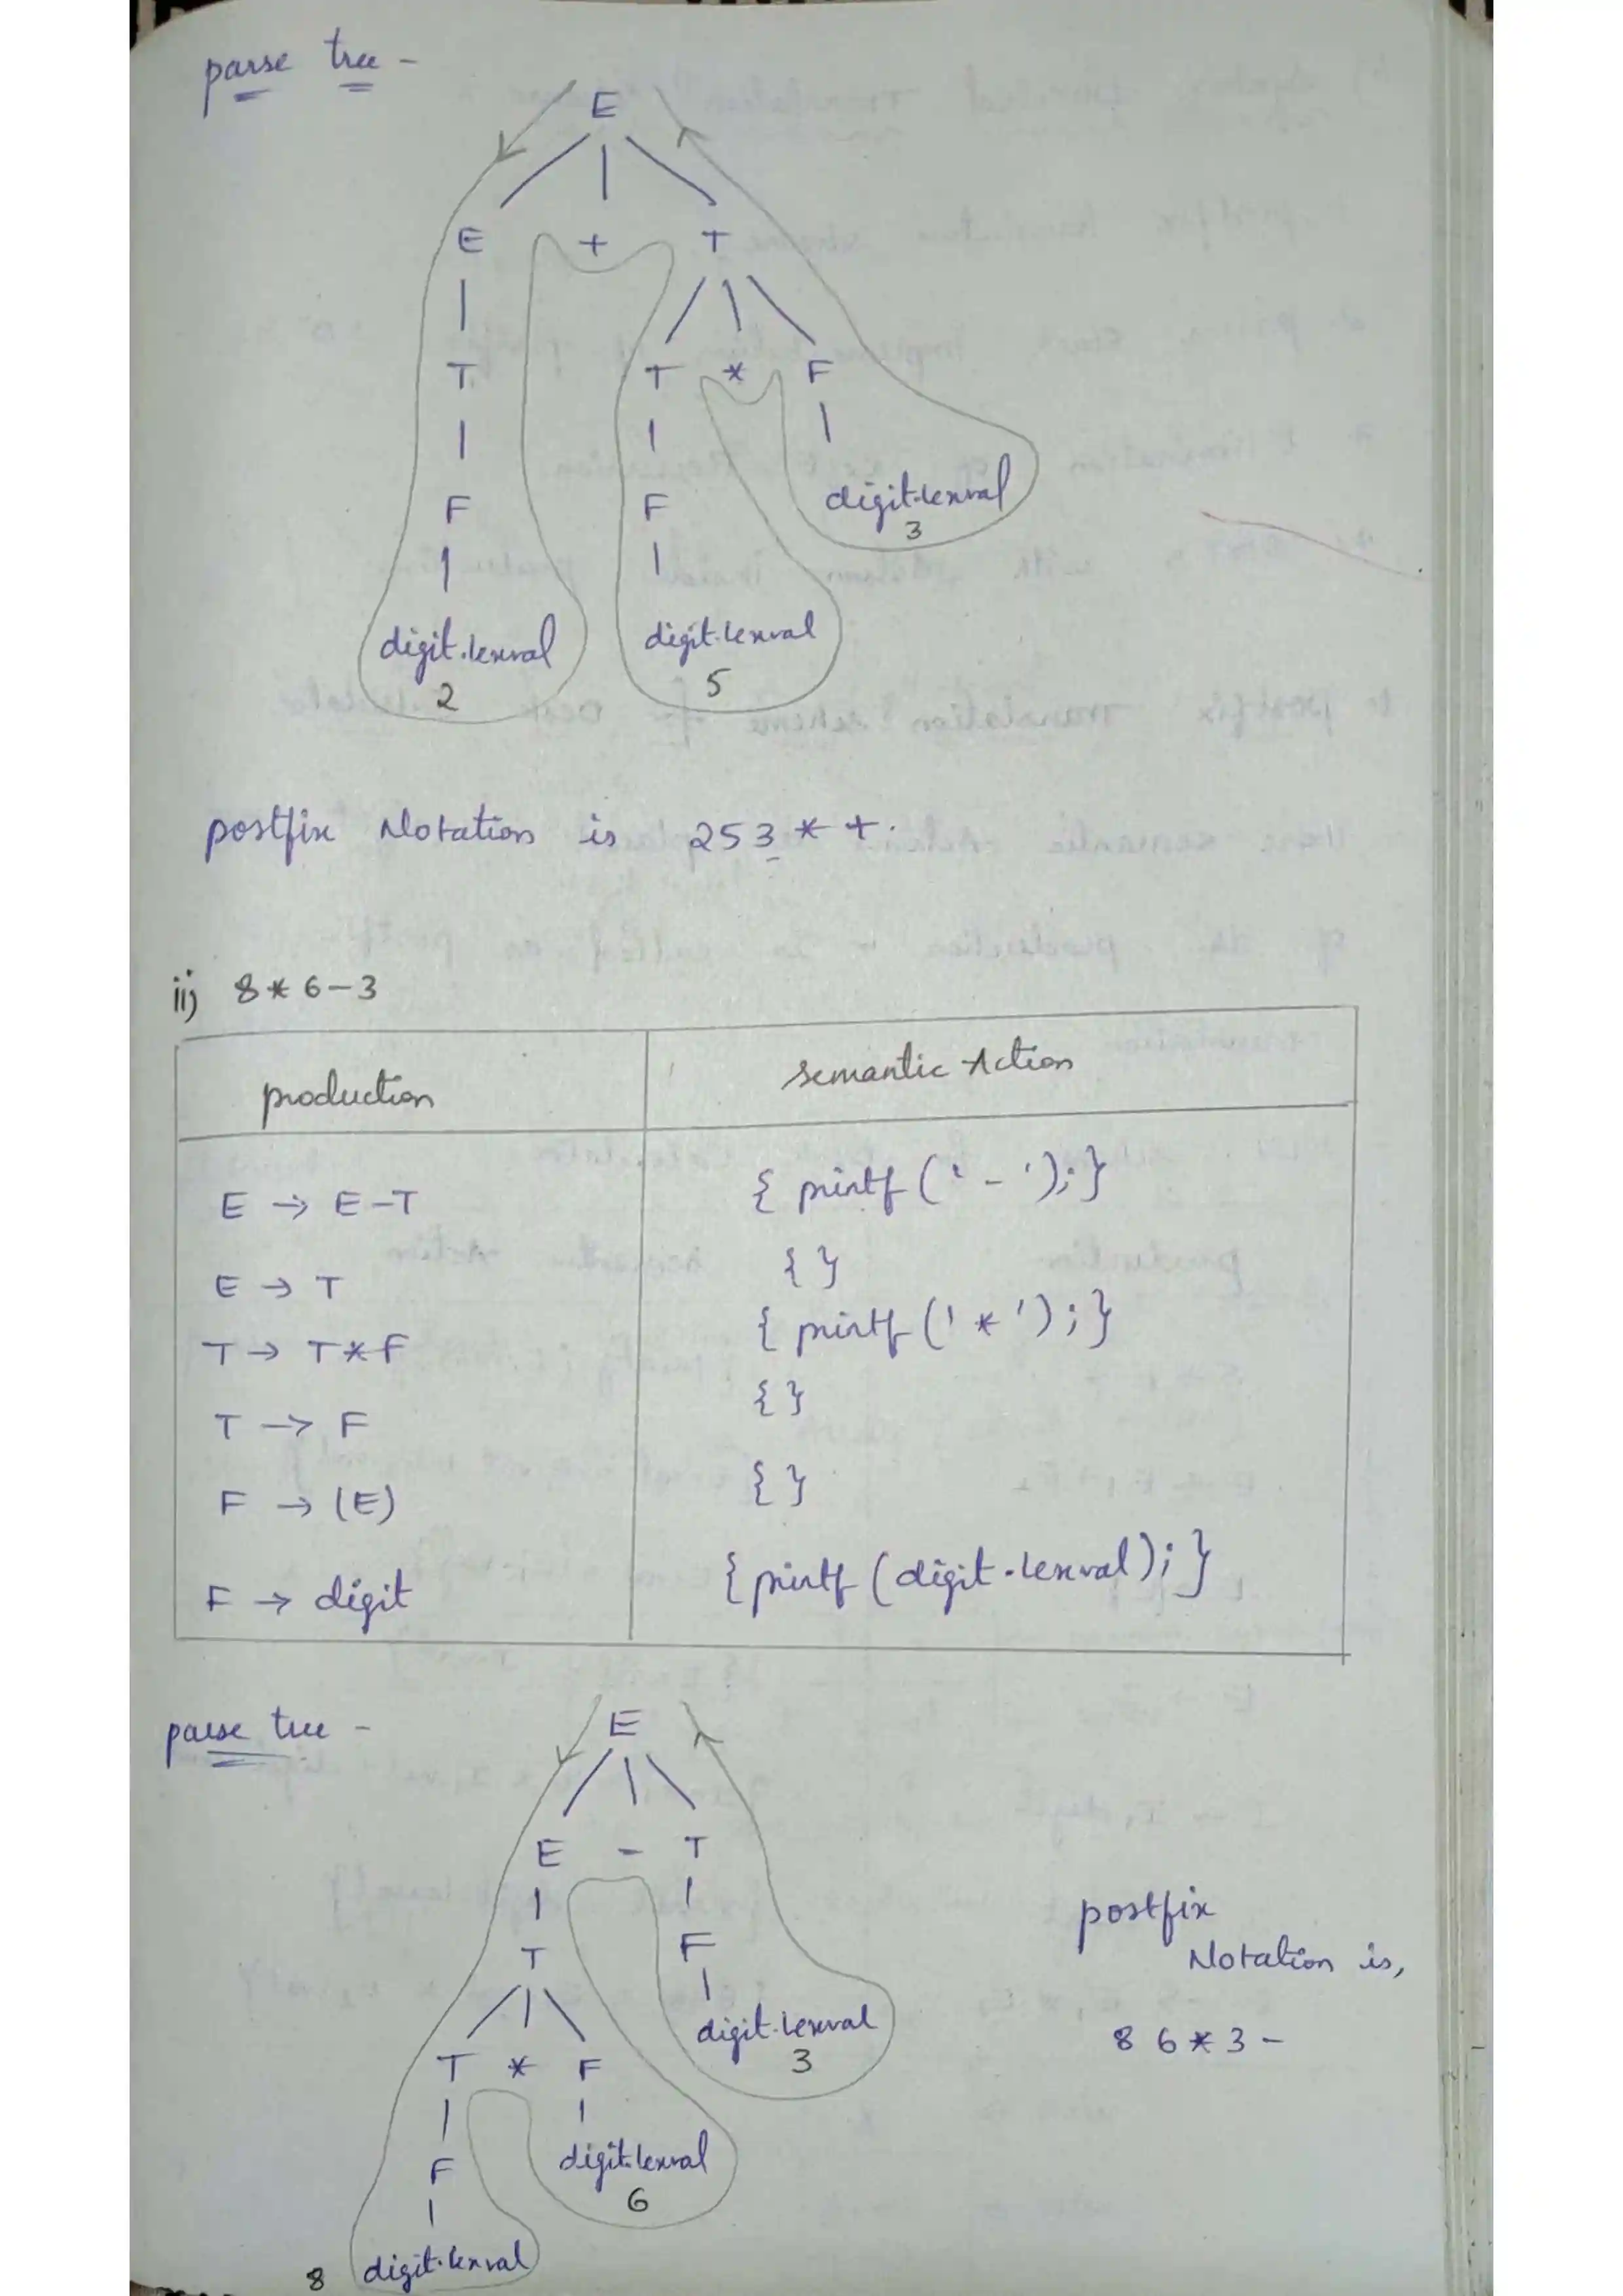 parse tree -
E
E + T
T T * F
F F digit.lexval
3
digit.lexval digit.lexval
2 5
postfix Notation is 253*+.
ii) 8*6-3
production semantic Action
E → E-T { printf('-');}
E → T { }
T → T*F { printf('*');}
T → F { }
F → (E) { }
F → digit {printf(digit.lexval);}
parse tree -
E
E - T
T F
T * F digit.lexval
3
F digit.lexval
6
8 digit.lexval
postfix
Notation is,
8 6 * 3 -